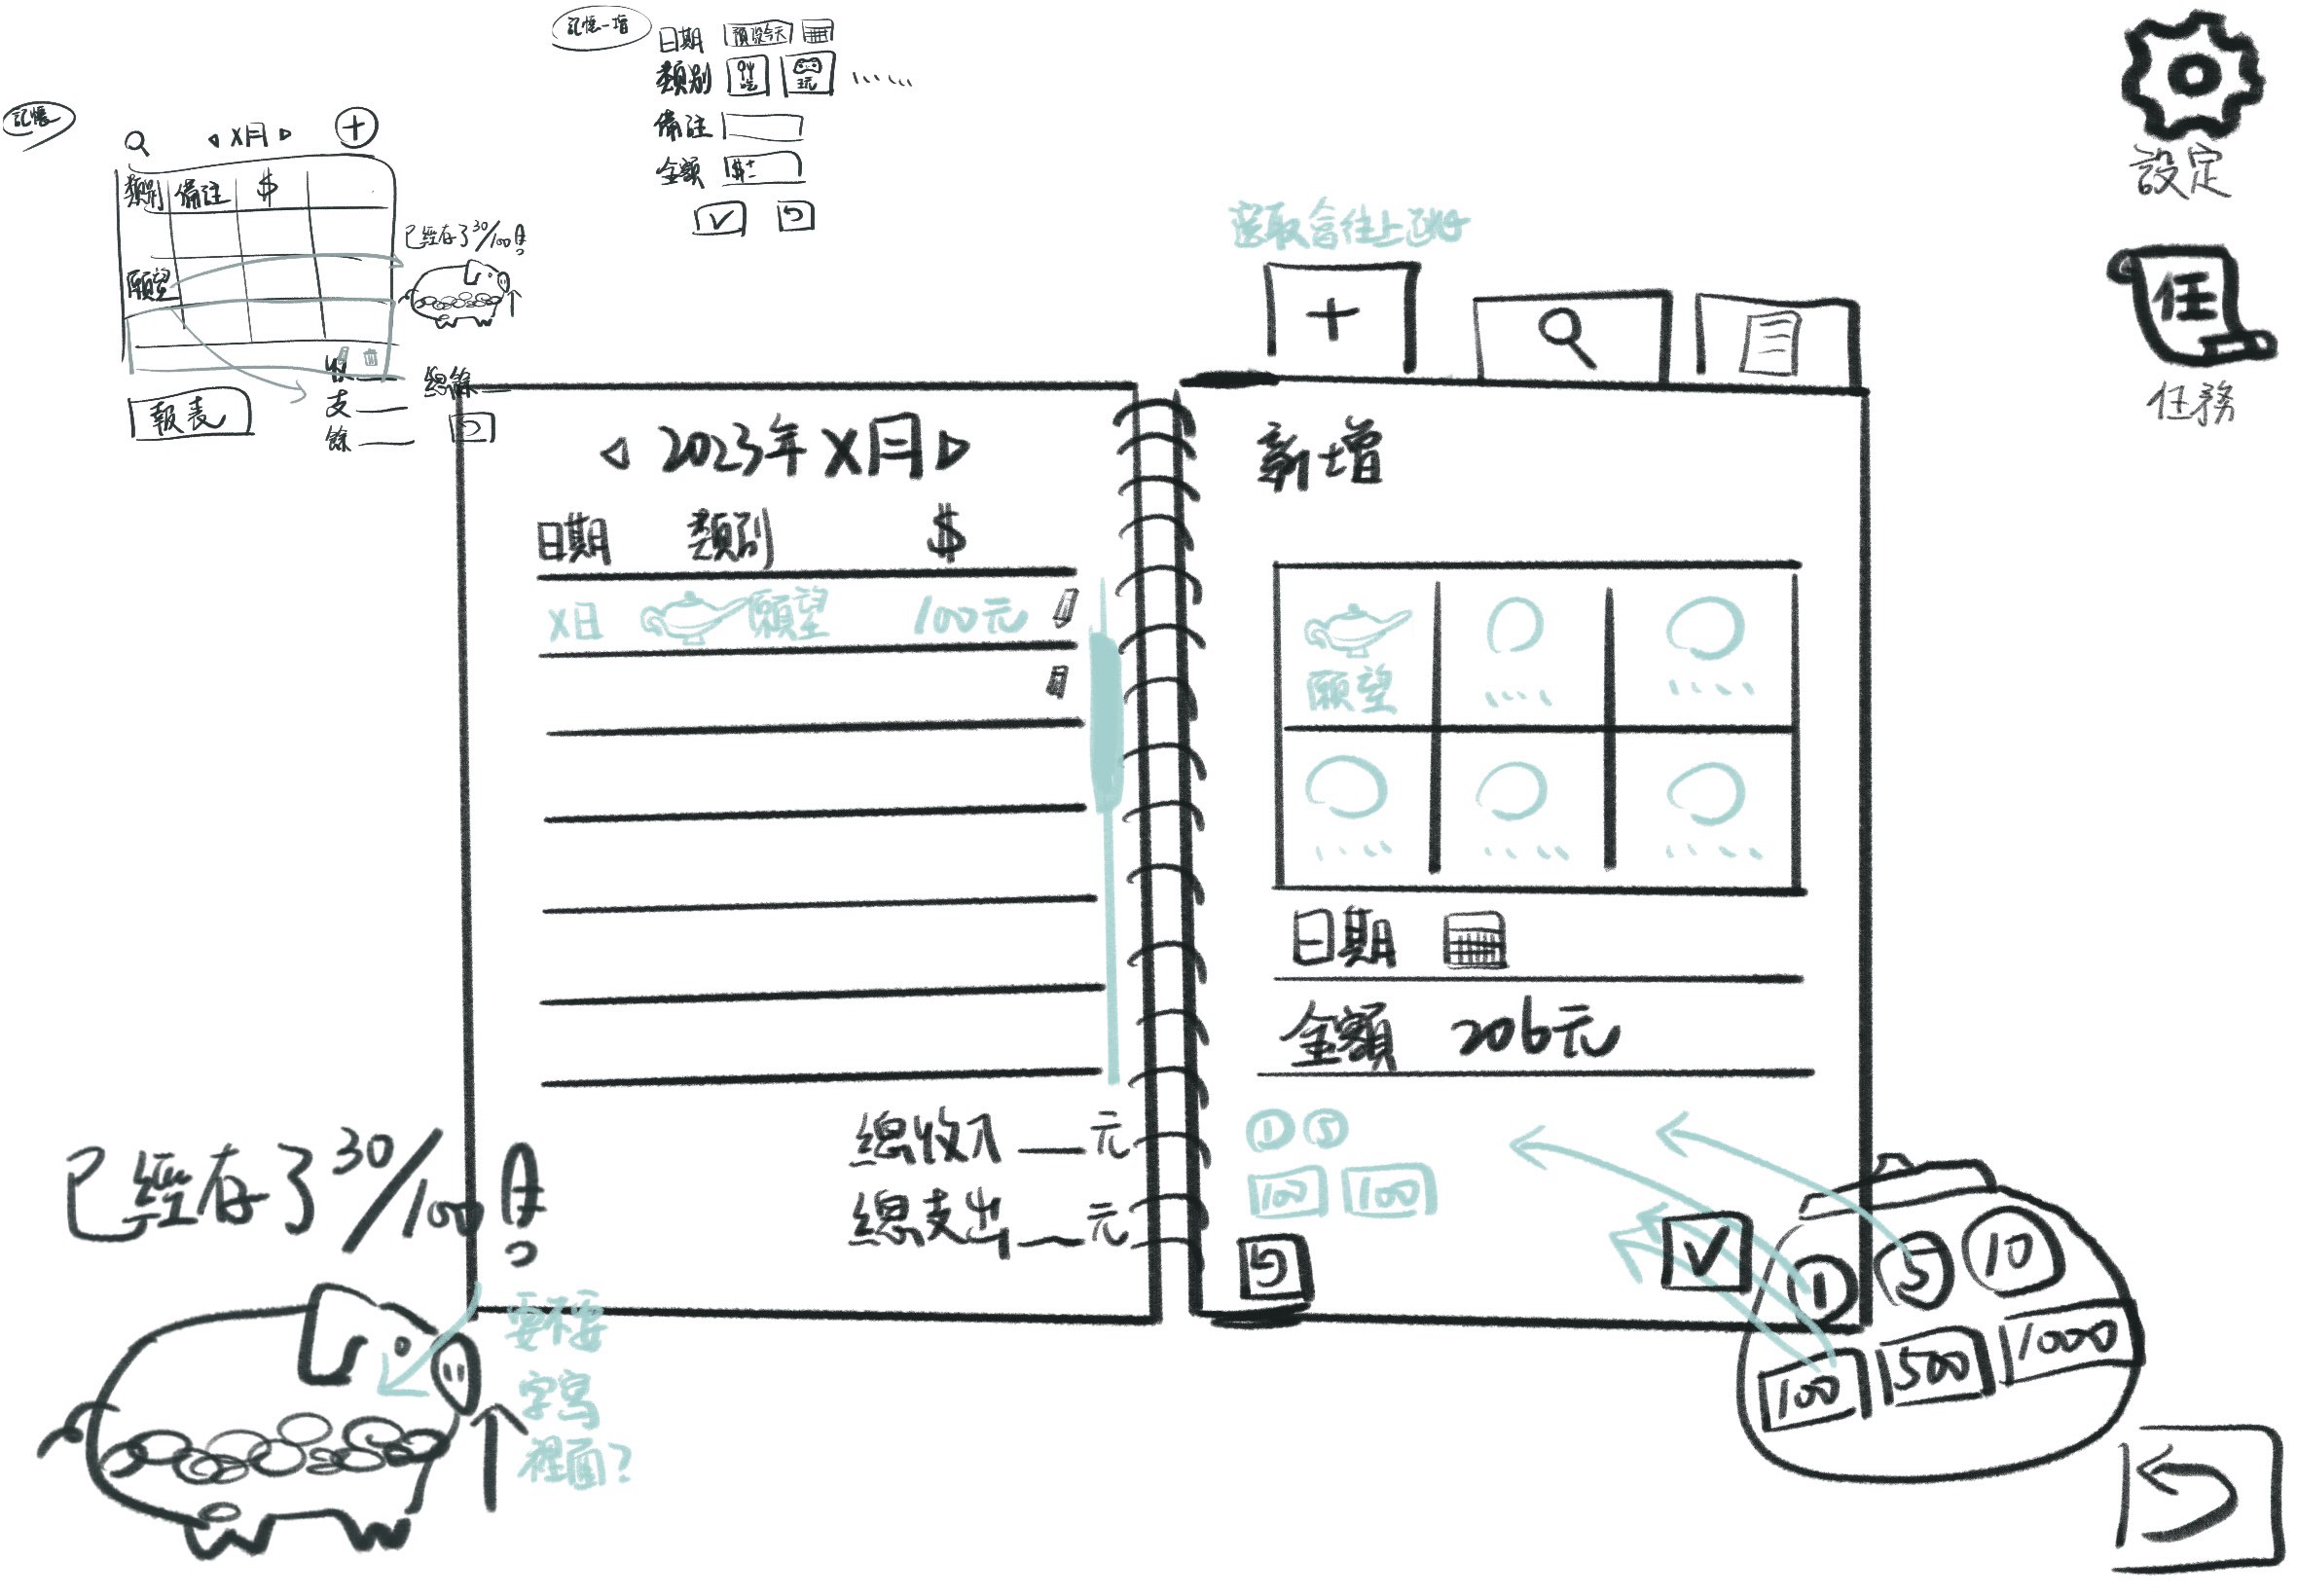 記帳
X月
類別 備註 $
願望
已經存了30/100
收
支
餘
總餘
報表
記帳-增
日期 預設今天
類別 吃 玩 ......
備註
金額 $
設定
任
任務
選取會往上跳
2023年X月
日期 類別 $
X日 願望 100元
總收入__元
總支出__元
新增
願望
日期
金額 206元
1 5
100 100
1 5 10
100 500 1000
已經存了30/100
要不要
字寫
裡面?